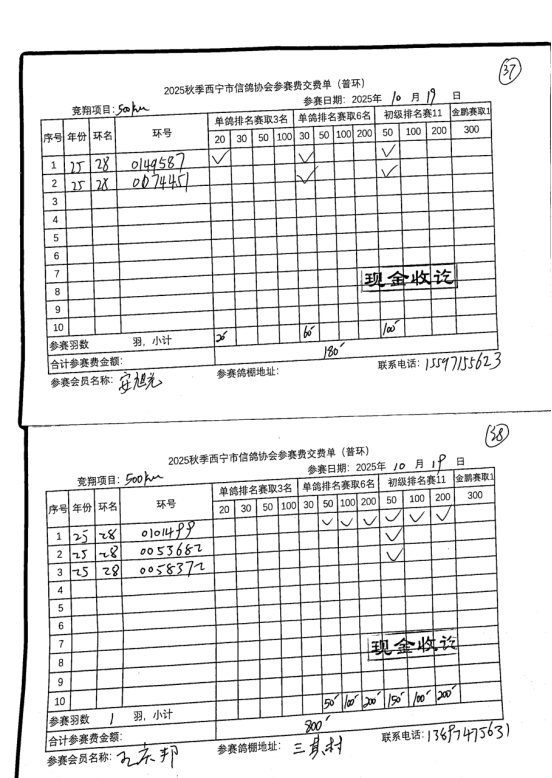 37
2025秋季西宁市信鸽协会参赛费交费单（普环）
竞翔项目：500km 参赛日期：2025年 10 月 19 日
序号 年份 环名 环号 单鸽排名赛取3名 单鸽排名赛取6名 初级排名赛11 金鹏赛取1
20 30 50 100 30 50 100 200 50 100 200 300
1 25 28 0149587 ✓ ✓ ✓
2 25 28 0074451 ✓ ✓
3
4
5
6
7
现金收讫
8
9
10
参赛羽数 羽，小计 20 60 100
合计参赛费金额： 180
参赛会员名称： 安旭 参赛鸽棚地址： 联系电话：15597155623
38
2025秋季西宁市信鸽协会参赛费交费单（普环）
竞翔项目：500km 参赛日期：2025年 10 月 19 日
序号 年份 环名 环号 单鸽排名赛取3名 单鸽排名赛取6名 初级排名赛11 金鹏赛取1
20 30 50 100 30 50 100 200 50 100 200 300
1 25 28 0101499 ✓ ✓ ✓ ✓ ✓ ✓
2 25 28 0053682 ✓
3 25 28 0058372 ✓
4
5
6
7
现金收讫
8
9
10
参赛羽数 1 羽，小计 50 100 200 150 100 200
合计参赛费金额： 800
参赛会员名称： 邦 参赛鸽棚地址： 三其村 联系电话：13897475631